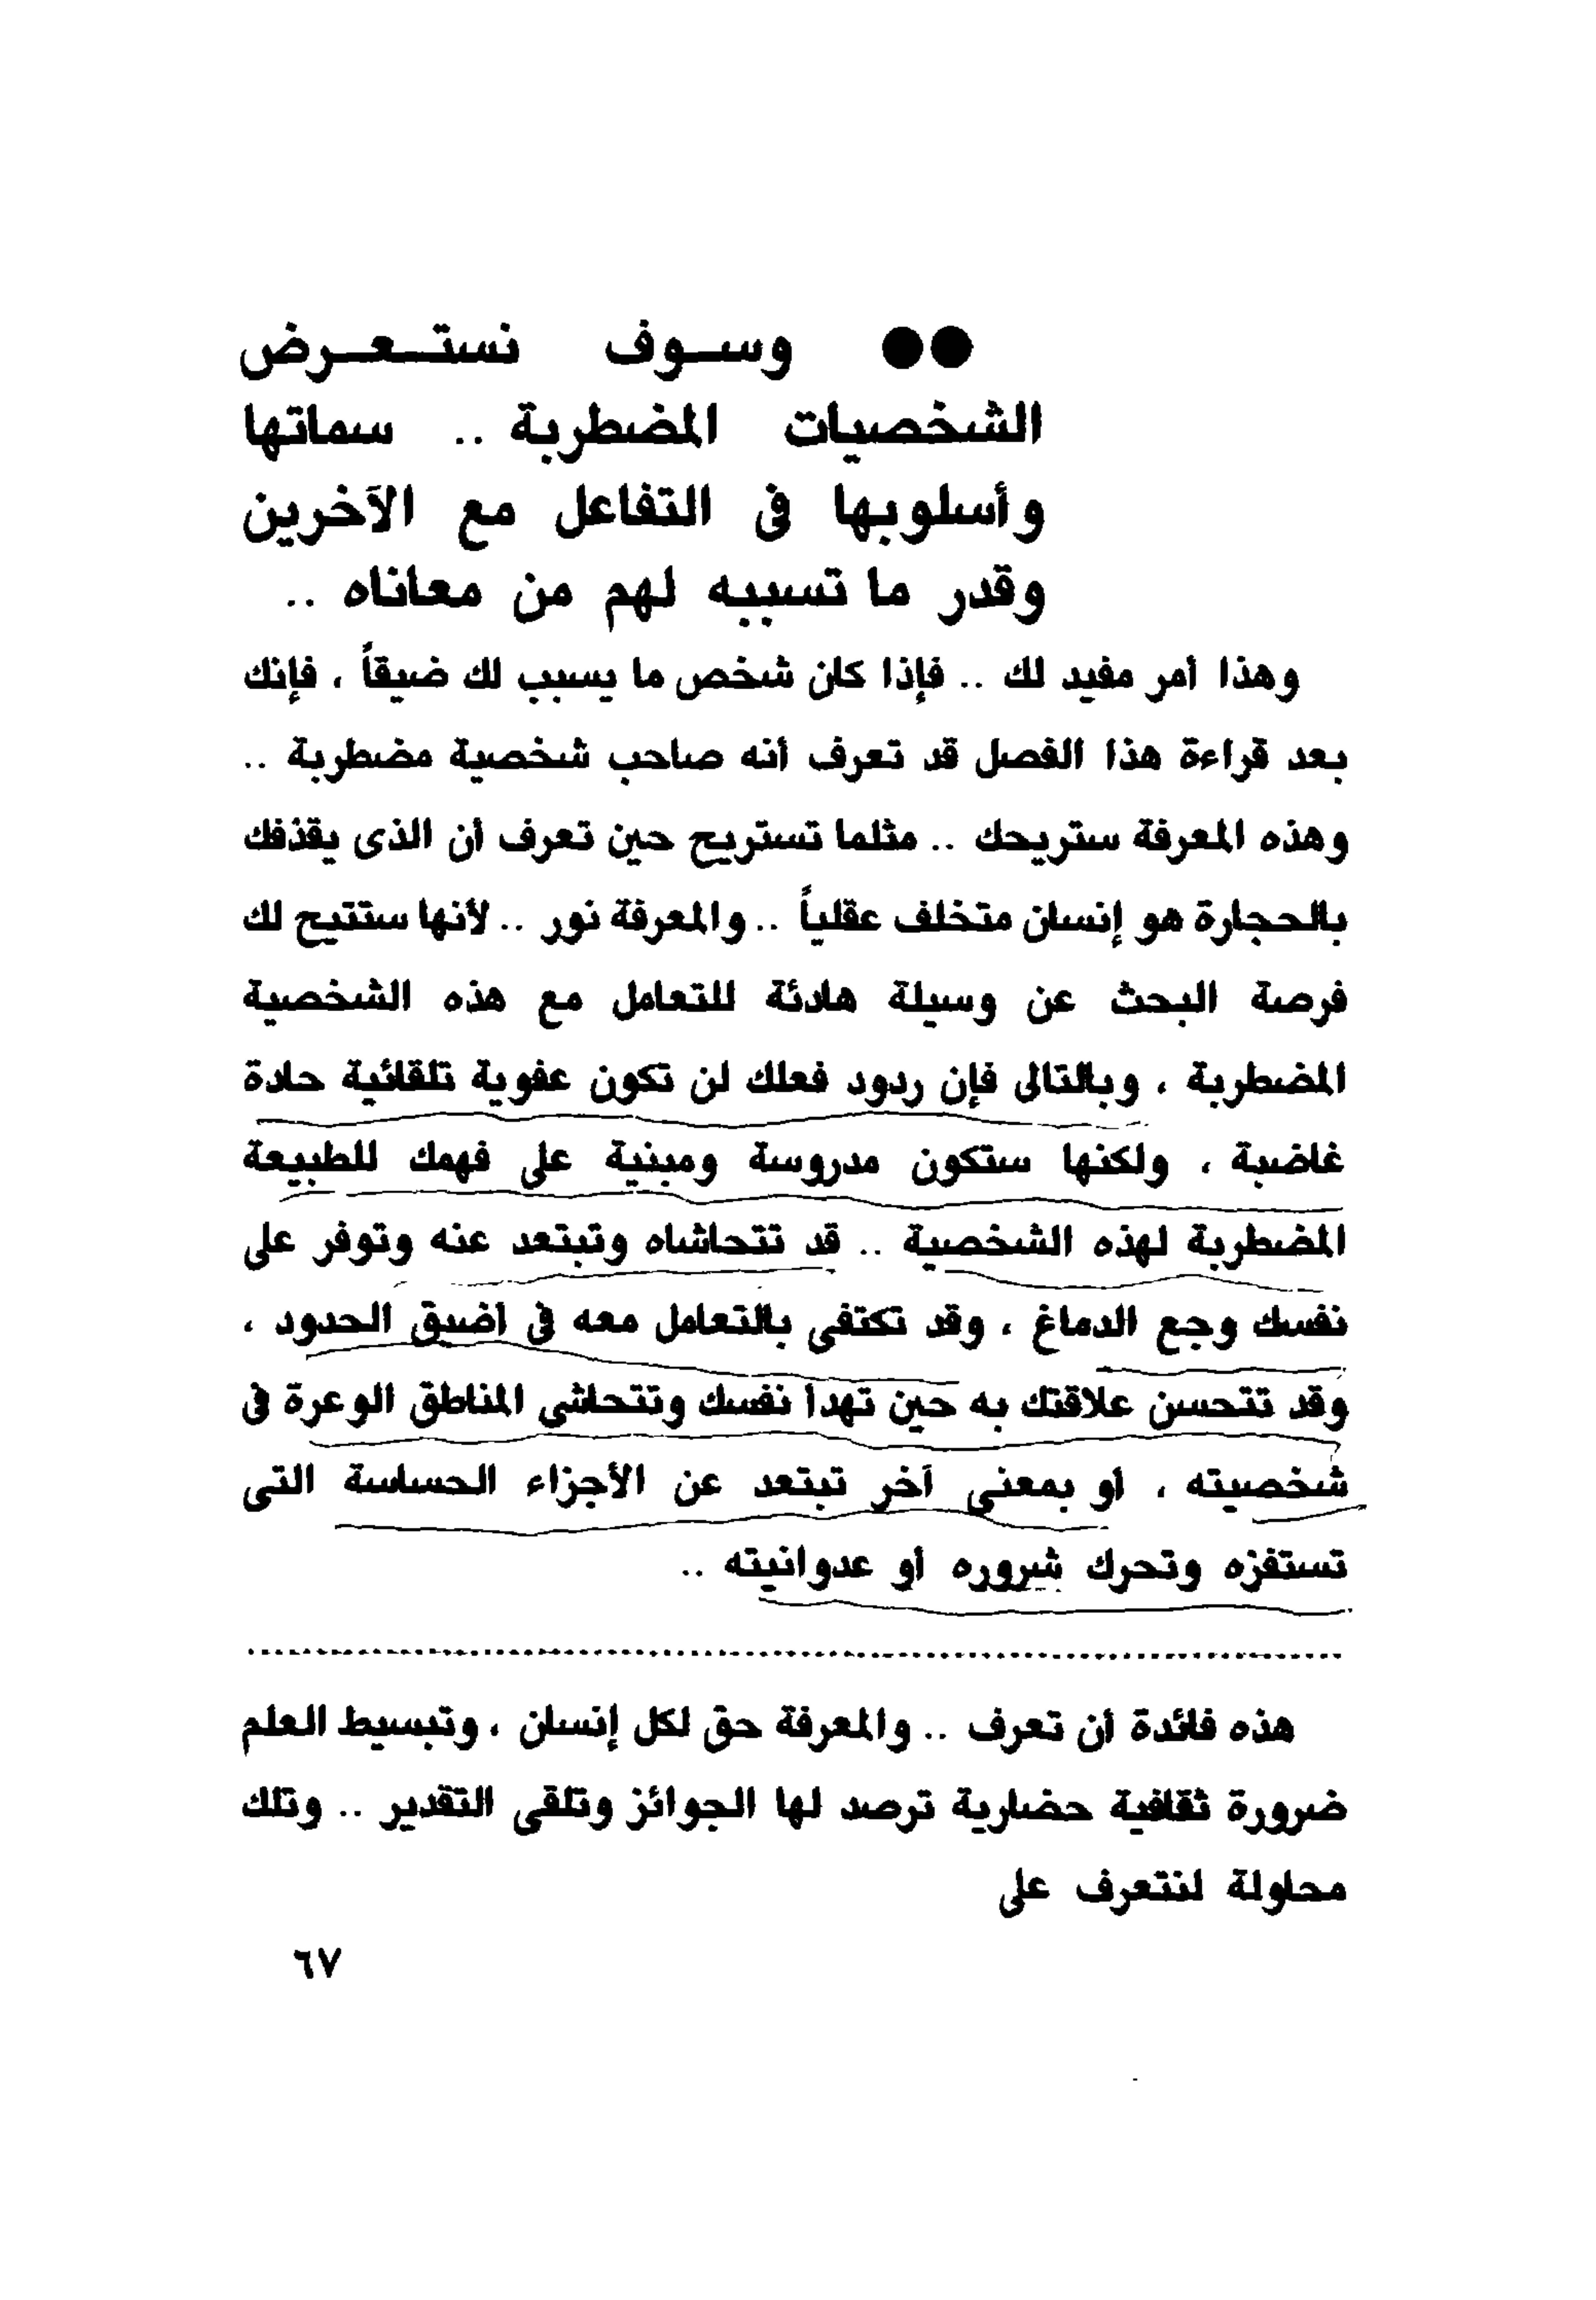 ●● وسوف نستعرض
الشخصيات المضطربة .. سماتها
وأسلوبها فى التفاعل مع الآخرين
وقدر ما تسببه لهم من معاناه ..
وهذا أمر مفيد لك .. فإذا كان شخص ما يسبب لك ضيقاً ، فإنك
بعد قراءة هذا الفصل قد تعرف أنه صاحب شخصية مضطربة ..
وهذه المعرفة ستريحك .. مثلما تستريح حين تعرف أن الذى يقذفك
بالحجارة هو إنسان متخلف عقلياً .. والمعرفة نور .. لأنها ستتيح لك
فرصة البحث عن وسيلة هادئة للتعامل مع هذه الشخصية
المضطربة ، وبالتالى فإن ردود فعلك لن تكون عفوية تلقائية حادة
غاضبة ، ولكنها ستكون مدروسة ومبنية على فهمك للطبيعة
المضطربة لهذه الشخصية .. قد تتحاشاه وتبتعد عنه وتوفر على
نفسك وجع الدماغ ، وقد تكتفى بالتعامل معه فى أضيق الحدود ،
وقد تتحسن علاقتك به حين تهدأ نفسك وتتحاشى المناطق الوعرة فى
شخصيته ، أو بمعنى آخر تبتعد عن الأجزاء الحساسة التى
تستفزه وتحرك شروره أو عدوانيته ..
هذه فائدة أن تعرف .. والمعرفة حق لكل إنسان ، وتبسيط العلم
ضرورة ثقافية حضارية ترصد لها الجوائز وتلقى التقدير .. وتلك
محاولة لنتعرف على
٦٧